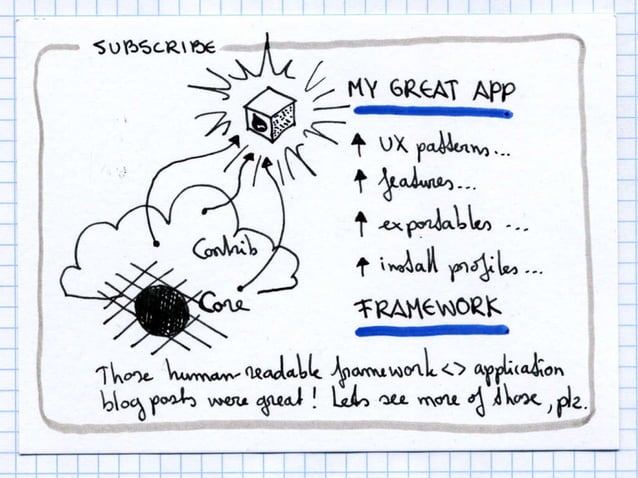 SUBSCRIBE
MY GREAT APP
UX patterns...
features...
exportables ...
install profiles...
FRAMEWORK
Contrib
Core
Those human-readable framework <> application
blog posts were great! Lets see more of those, plz.